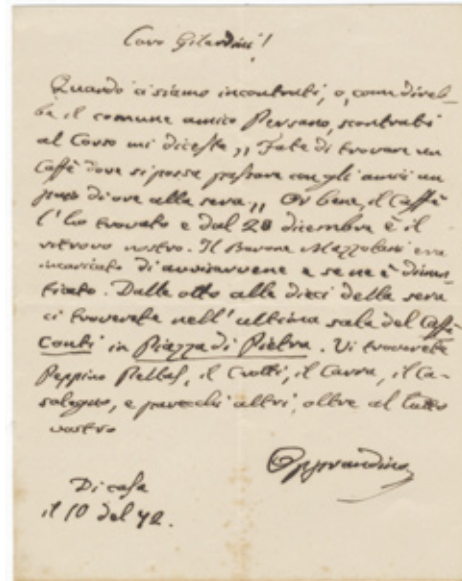 Caro Gilardini!
Quando ci siamo incontrati, o, come direb-
be il comune amico Persano, scontrati
al Corso mi diceste „ Fate di trovare un
Caffè dove si possa passare con gli amici un
pajo di ore alla sera „ Or bene, il Caffè
l'ho trovato e dal 28 dicembre è il
ritrovo nostro. Il Barone Mazzolani era
incaricato di avvisarvene e se ne è dimen-
ticato. Dalle otto alle dieci della sera
ci troverete nell'ultima sala del Caffè
Conti in Piazza di Pietra. Vi troverete
Peppino Pellas, il Crotti, il Carra, il Ca-
salegno, e parecchi altri, oltre al tutto
vostro
Di casa
il 10 del 72.